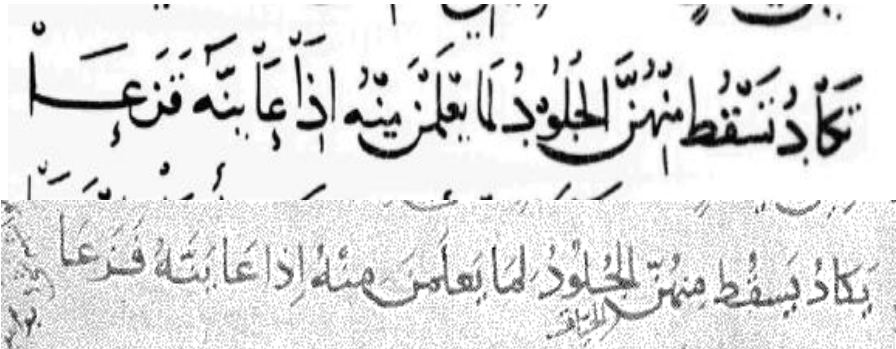 تَكَادُ تَسَّقُط مِنْهُنَّ الجَلُوْدُ لَمَا يَعْلَمْنَ مِنْهُ اِذَا عَايَنَّه فَزَعَا
يَكادُ يَسقُط مِنهُنّ الجُلُودُ لمَا يَعلَمنَ مِنْهُ إِذا عَايَنَتهُ فَزَعَا